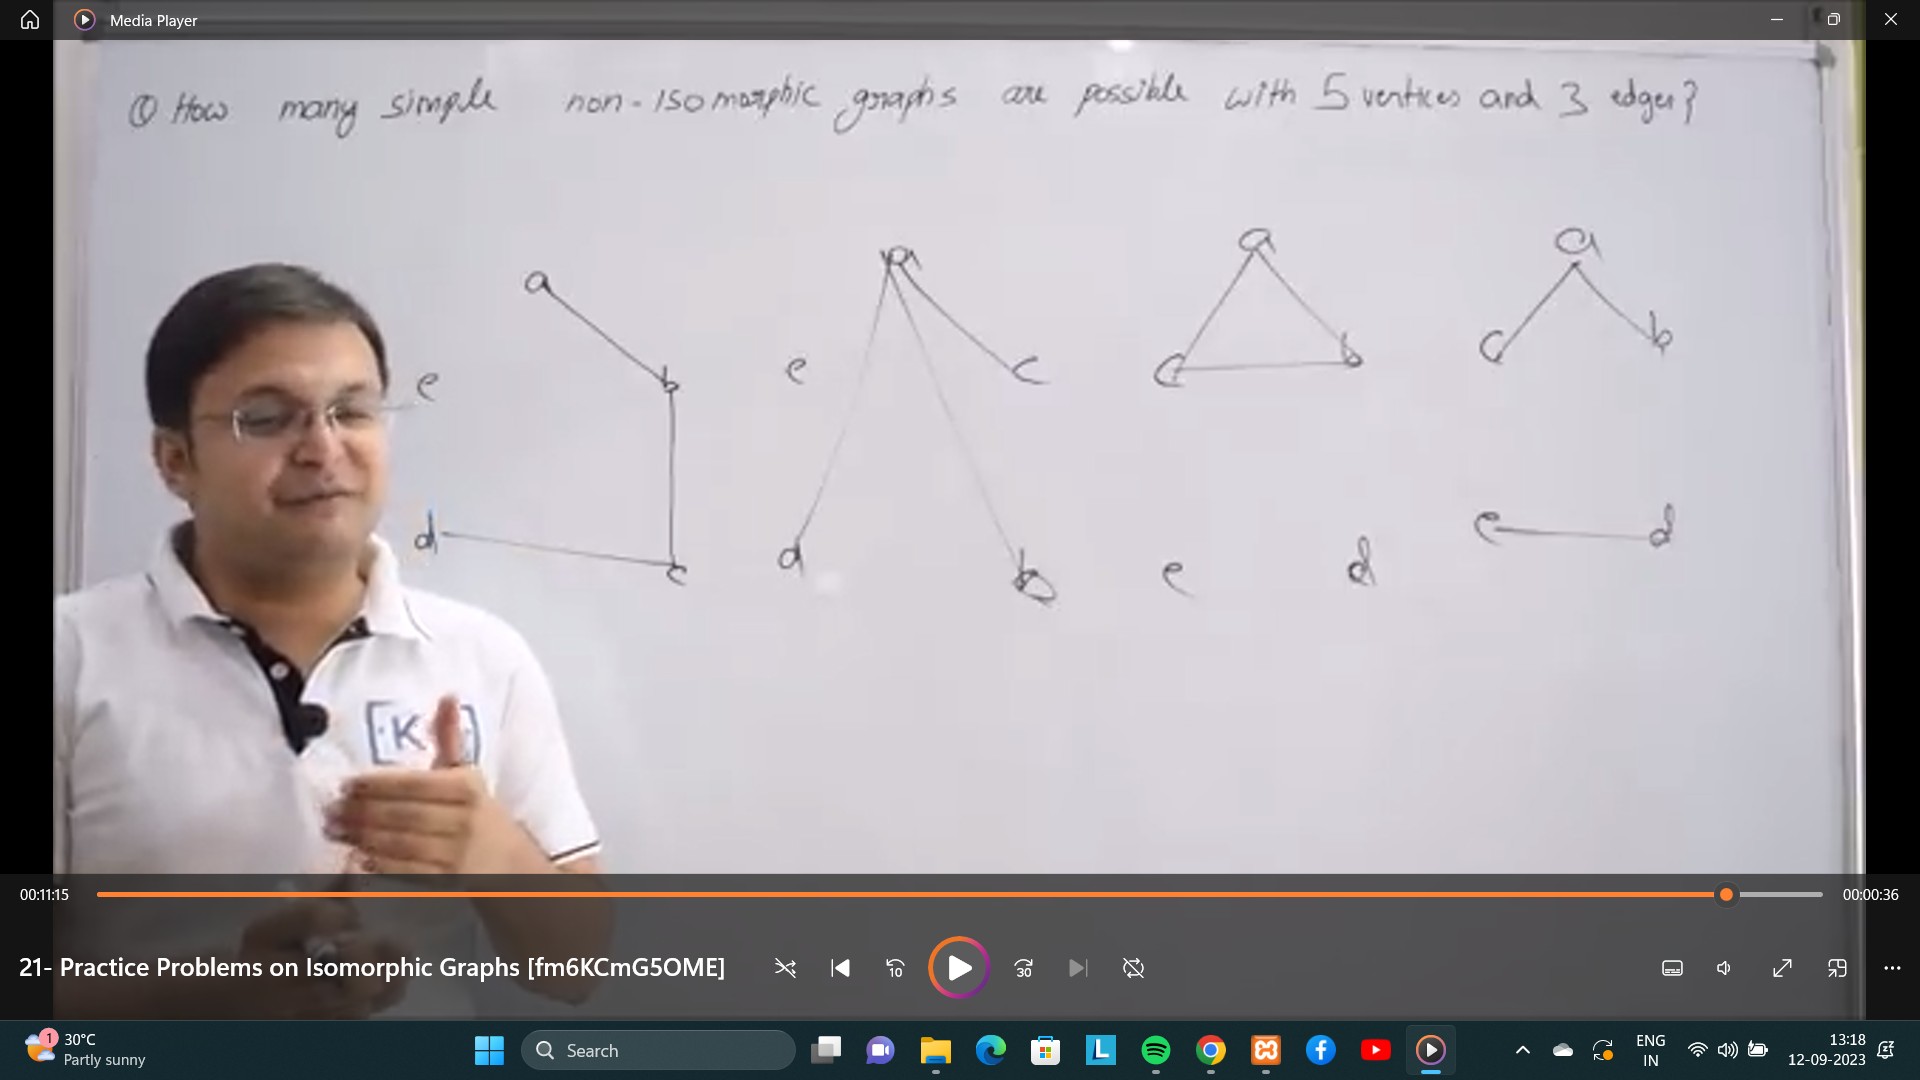 Media Player
① How many simple non-isomorphic graphs are possible with 5 vertices and 3 edges?
a
a
a
a
e
b
e
c
c
b
c
b
d
c
d
b
e
d
e
d
[·K ]
00:11:15
00:00:36
21- Practice Problems on Isomorphic Graphs [fm6KCmG5OME]
10
30
1
30°C
Partly sunny
Search
L
ENG
IN
13:18
12-09-2023